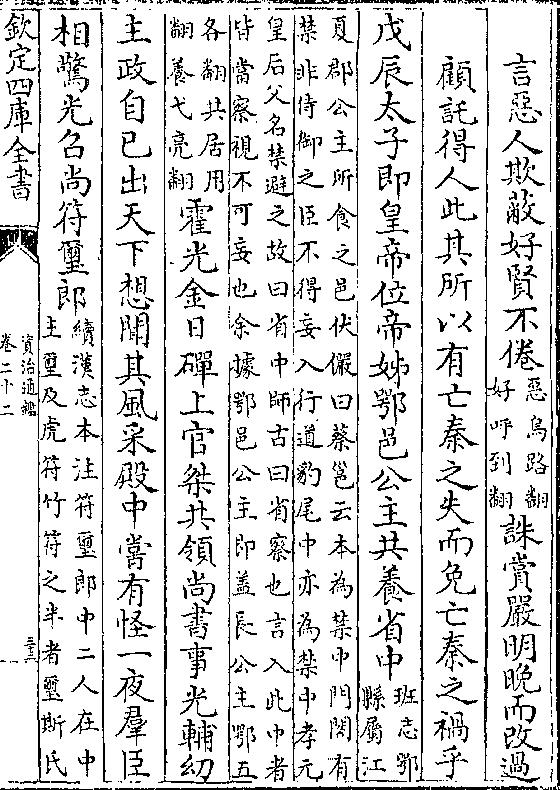 言惡人欺蔽好賢不倦惡烏路翻好呼到翻誅賞嚴明晚而改過
顧託得人此其所以有亡秦之失而免亡秦之禍乎
戊辰太子即皇帝位帝姊鄂邑公主共養省中班志鄂縣屬江
夏郡公主所食之邑伏儼曰蔡邕云本為禁中門閤有
禁非侍御之臣不得妄入行道豹尾中亦為禁中孝元
皇后父名禁避之故曰省中師古曰省察也言入此中者
皆當察視不可妄也余據鄂邑公主即蓋長公主鄂五
各翻共居用
翻養弋亮翻
霍光金日磾上官桀共領尚書事光輔幼
主政自己出天下想聞其風采殿中嘗有怪一夜羣臣
相驚光召尚符璽郎續漢志本注符璽郎中二人在中
主璽及虎符竹符之半者璽斯氏
欽定四庫全書
資治通鑑
卷二十二
三三